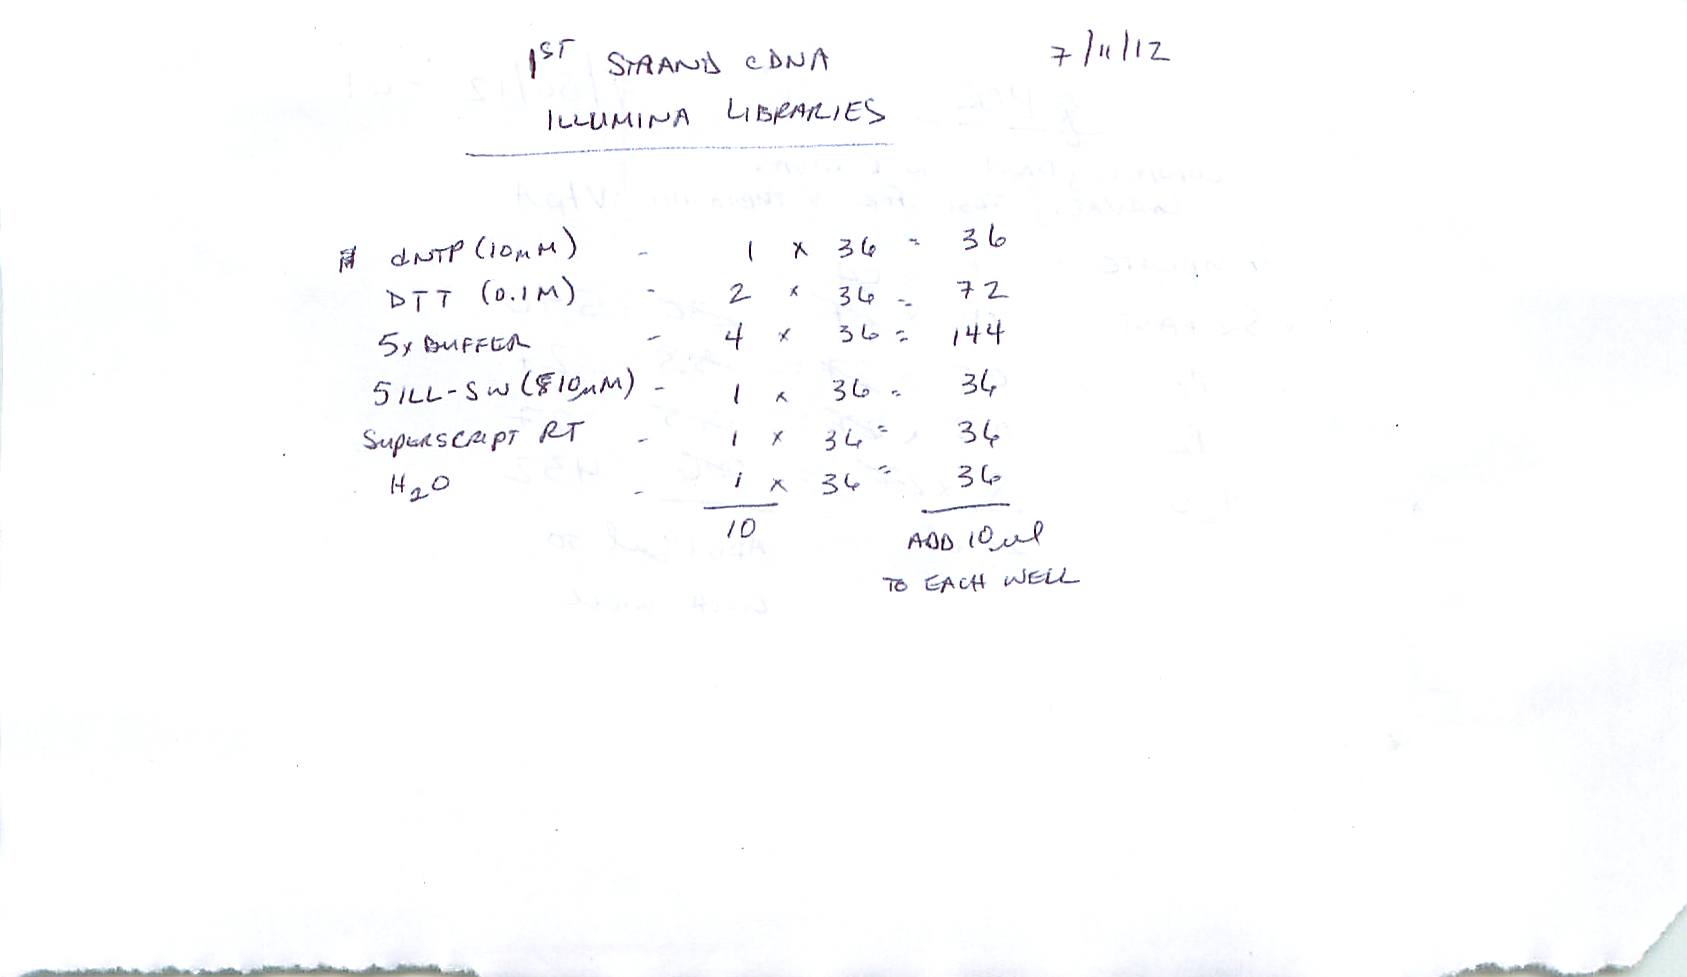 1ST STRAND cDNA 7/11/12
ILLUMINA LIBRARIES
dNTP (10mM) - 1 x 36 = 36
DTT (0.1M) - 2 x 36 = 72
5x BUFFER - 4 x 36 = 144
5ILL-SW (10µM) - 1 x 36 = 36
SUPERSCRIPT RT - 1 x 36 = 36
H2O - 1 x 36 = 36
10 ADD 10µl
TO EACH WELL